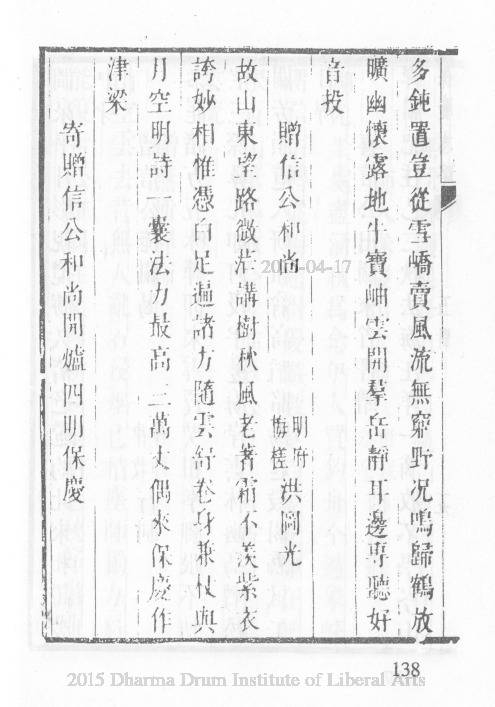 多鈍置豈從雪嶠賣風流無窮野况鳴歸鶴放
曠幽懷露地牛寶岫雲開羣岳靜耳邊專聽好
音投
贈信公和尚 洪圖光
故山東望路微茫講樹秋風老著霜不羨紫衣
誇妙相惟憑白足遍諸方隨雲舒卷身兼杖與
月空明詩一囊法力最高二萬丈偶來保慶作
津梁
寄贈信公和尚開爐四明保慶
138
2015-04-17
2015 Dharma Drum Institute of Liberal Arts